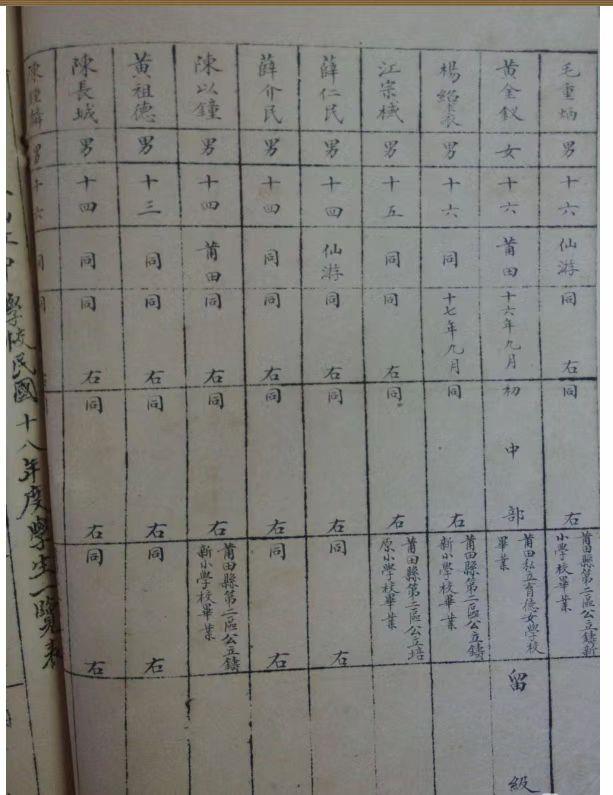 毛重炳 男 十六 仙游 同右 同右 莆田縣第二區公立鑄新小學校畢業
黃金釵 女 十六 莆田 十六年九月 初中部 莆田私立育德女學校畢業 留級
楊紹裘 男 十六 同 十七年九月 同右 莆田縣第二區公立鑄新小學校畢業
江宗棫 男 十五 同 同右 同右 莆田縣第二區公立培原小學校畢業
薛仁民 男 十四 仙游 同右 同右 同右
薛介民 男 十四 同 同右 同右 同右
陳以鐘 男 十四 莆田 同右 同右 莆田縣第二區公立鑄新小學校畢業
黃祖德 男 十三 同 同右 同右 同右
陳長城 男 十四 同 同右 同右 同右
陳 男 十六 同 同
學校民國十八年度學生一覽表